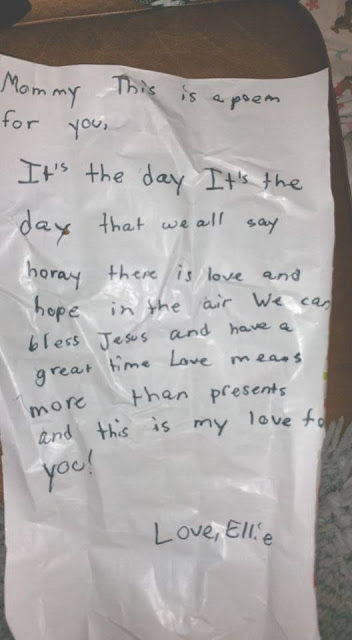 Mommy This is a poem
for you,
It's the day It's the
day that we all say
horay there is love and
hope in the air We can
bless Jesus and have a
great time Love means
more than presents
and this is my love to
you!
Love, Ellie